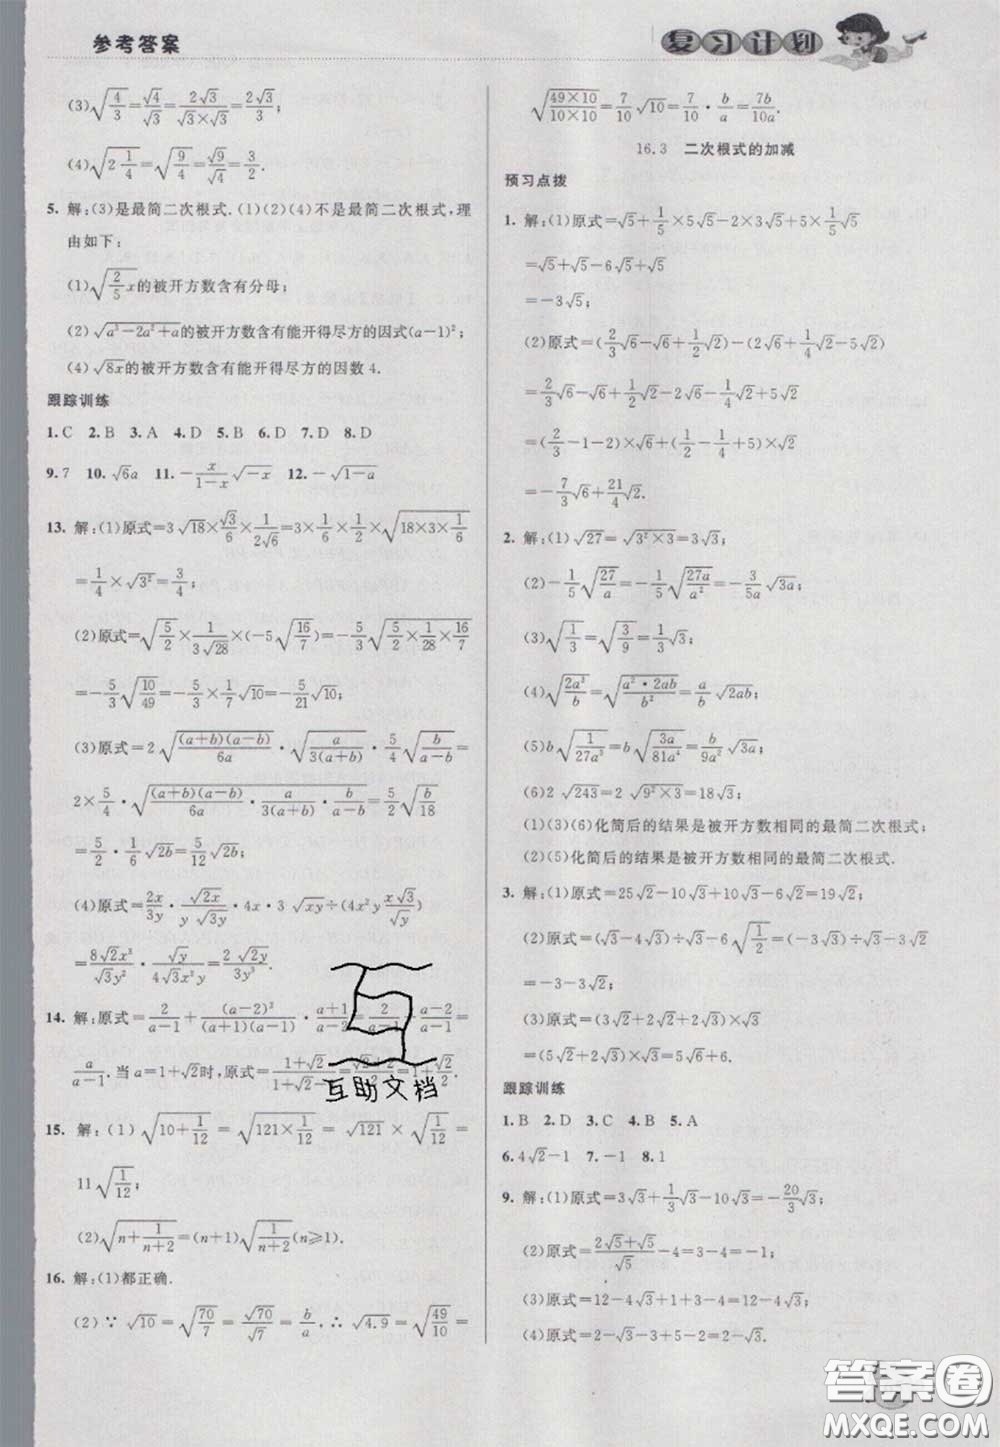 参考答案
复习计划
(3)√(4/3)=√4/√3=2√3/(√3×√3)=2√3/3;
(4)√(2 1/4)=√(9/4)=√9/√4=3/2.
5. 解:(3)是最简二次根式.(1)(2)(4)不是最简二次根式,理
由如下:
(1)√(2/5 x)的被开方数含有分母;
(2)√(a³-2a²+a)的被开方数含有能开得尽方的因式(a-1)²;
(4)√(8x)的被开方数含有能开得尽方的因数4.
跟踪训练
1.C 2.B 3.A 4.D 5.B 6.D 7.D 8.D
9.7 10.√6a 11.-x/(1-x)√(-x) 12.-√(1-a)
13. 解:(1)原式=3√18×√3/6×1/(2√6)=3×1/6×1/2×√(18×3×1/6)
=1/4×√(3²)=3/4;
(2)原式=√(5/2)×1/(3√28)×(-5√(16/7))=-5/3√(5/2×1/28×16/7)
=-5/3√(10/49)=-5/3×1/7√10=-5/21√10;
(3)原式=2√((a+b)(a-b)/6a)·√(a/3(a+b))·5/4√(b/(a-b))=
2×5/4·√((a+b)(a-b)/6a·a/3(a+b)·b/(a-b))=5/2√(b/18)
=5/2·1/6√(2b)=5/12√(2b);
(4)原式=2x/3y·√(2x)/(y√3)·4x·3√(xy)÷(4x²y x√3/√y)
=8√2x³/(√3y²)·√y/(4√3x³y)=2√(2y)/3y².
14. 解:原式=2/(a-1)+(a-2)²/((a+1)(a-1))·(a+1)/(a-2)=2/(a-1)+(a-2)/(a-1)=
a/(a-1).当a=1+√2时,原式=(1+√2)/(1+√2-1)=(√2+2)/2.
15. 解:(1)√(10+1/12)=√(121×1/12)=√121×√(1/12)=
11√(1/12);
(2)√(n+1/(n+2))=(n+1)√(1/(n+2))(n≥1).
16. 解:(1)都正确.
(2)∵√10=√(70/7)=√70/√7=b/a,∴√4.9=√(49/10)=
√(49×10/10×10)=7/10√10=7/10·b/a=7b/10a.
16.3 二次根式的加减
预习点拨
1. 解:(1)原式=√5+1/5×5√5-2×3√5+5×1/5√5
=√5+√5-6√5+√5
=-3√5;
(2)原式=(2/3√6-√6+1/2√2)-(2√6+1/4√2-5√2)
=2/3√6-√6+1/2√2-2√6-1/4√2+5√2
=(2/3-1-2)×√6+(1/2-1/4+5)×√2
=-7/3√6+21/4√2.
2. 解:(1)√27=√(3²×3)=3√3;
(2)-1/5√(27/a)=-1/5√(27a/a²)=-3/5a√(3a);
(3)√(1/3)=√(3/9)=1/3√3;
(4)√(2a³/b)=√(a²·2ab/b²)=a/b√(2ab);
(5)b√(1/27a³)=b√(3a/81a⁴)=b/9a²√(3a);
(6)2√243=2√(9²×3)=18√3;
(1)(3)(6)化简后的结果是被开方数相同的最简二次根式;
(2)(5)化简后的结果是被开方数相同的最简二次根式.
3. 解:(1)原式=25√2-10√3+10√3-6√2=19√2;
(2)原式=(√3-4√3)÷√3-6√(1/2)=(-3√3)÷√3-3√2
=-3-3√2;
(3)原式=(3√2+2√2+2√3)×√3
=(5√2+2√3)×√3=5√6+6.
跟踪训练
1.B 2.D 3.C 4.B 5.A
6.4√2-1 7.-1 8.1
9. 解:(1)原式=3√3+1/3√3-10√3=-20/3√3;
(2)原式=(2√5+√5)/√5-4=3-4=-1;
(3)原式=12-4√3+1+3-4=12-4√3;
(4)原式=2-√3-2+√3+1-2=-1.
互助文档
答案圈
MXQE.COM